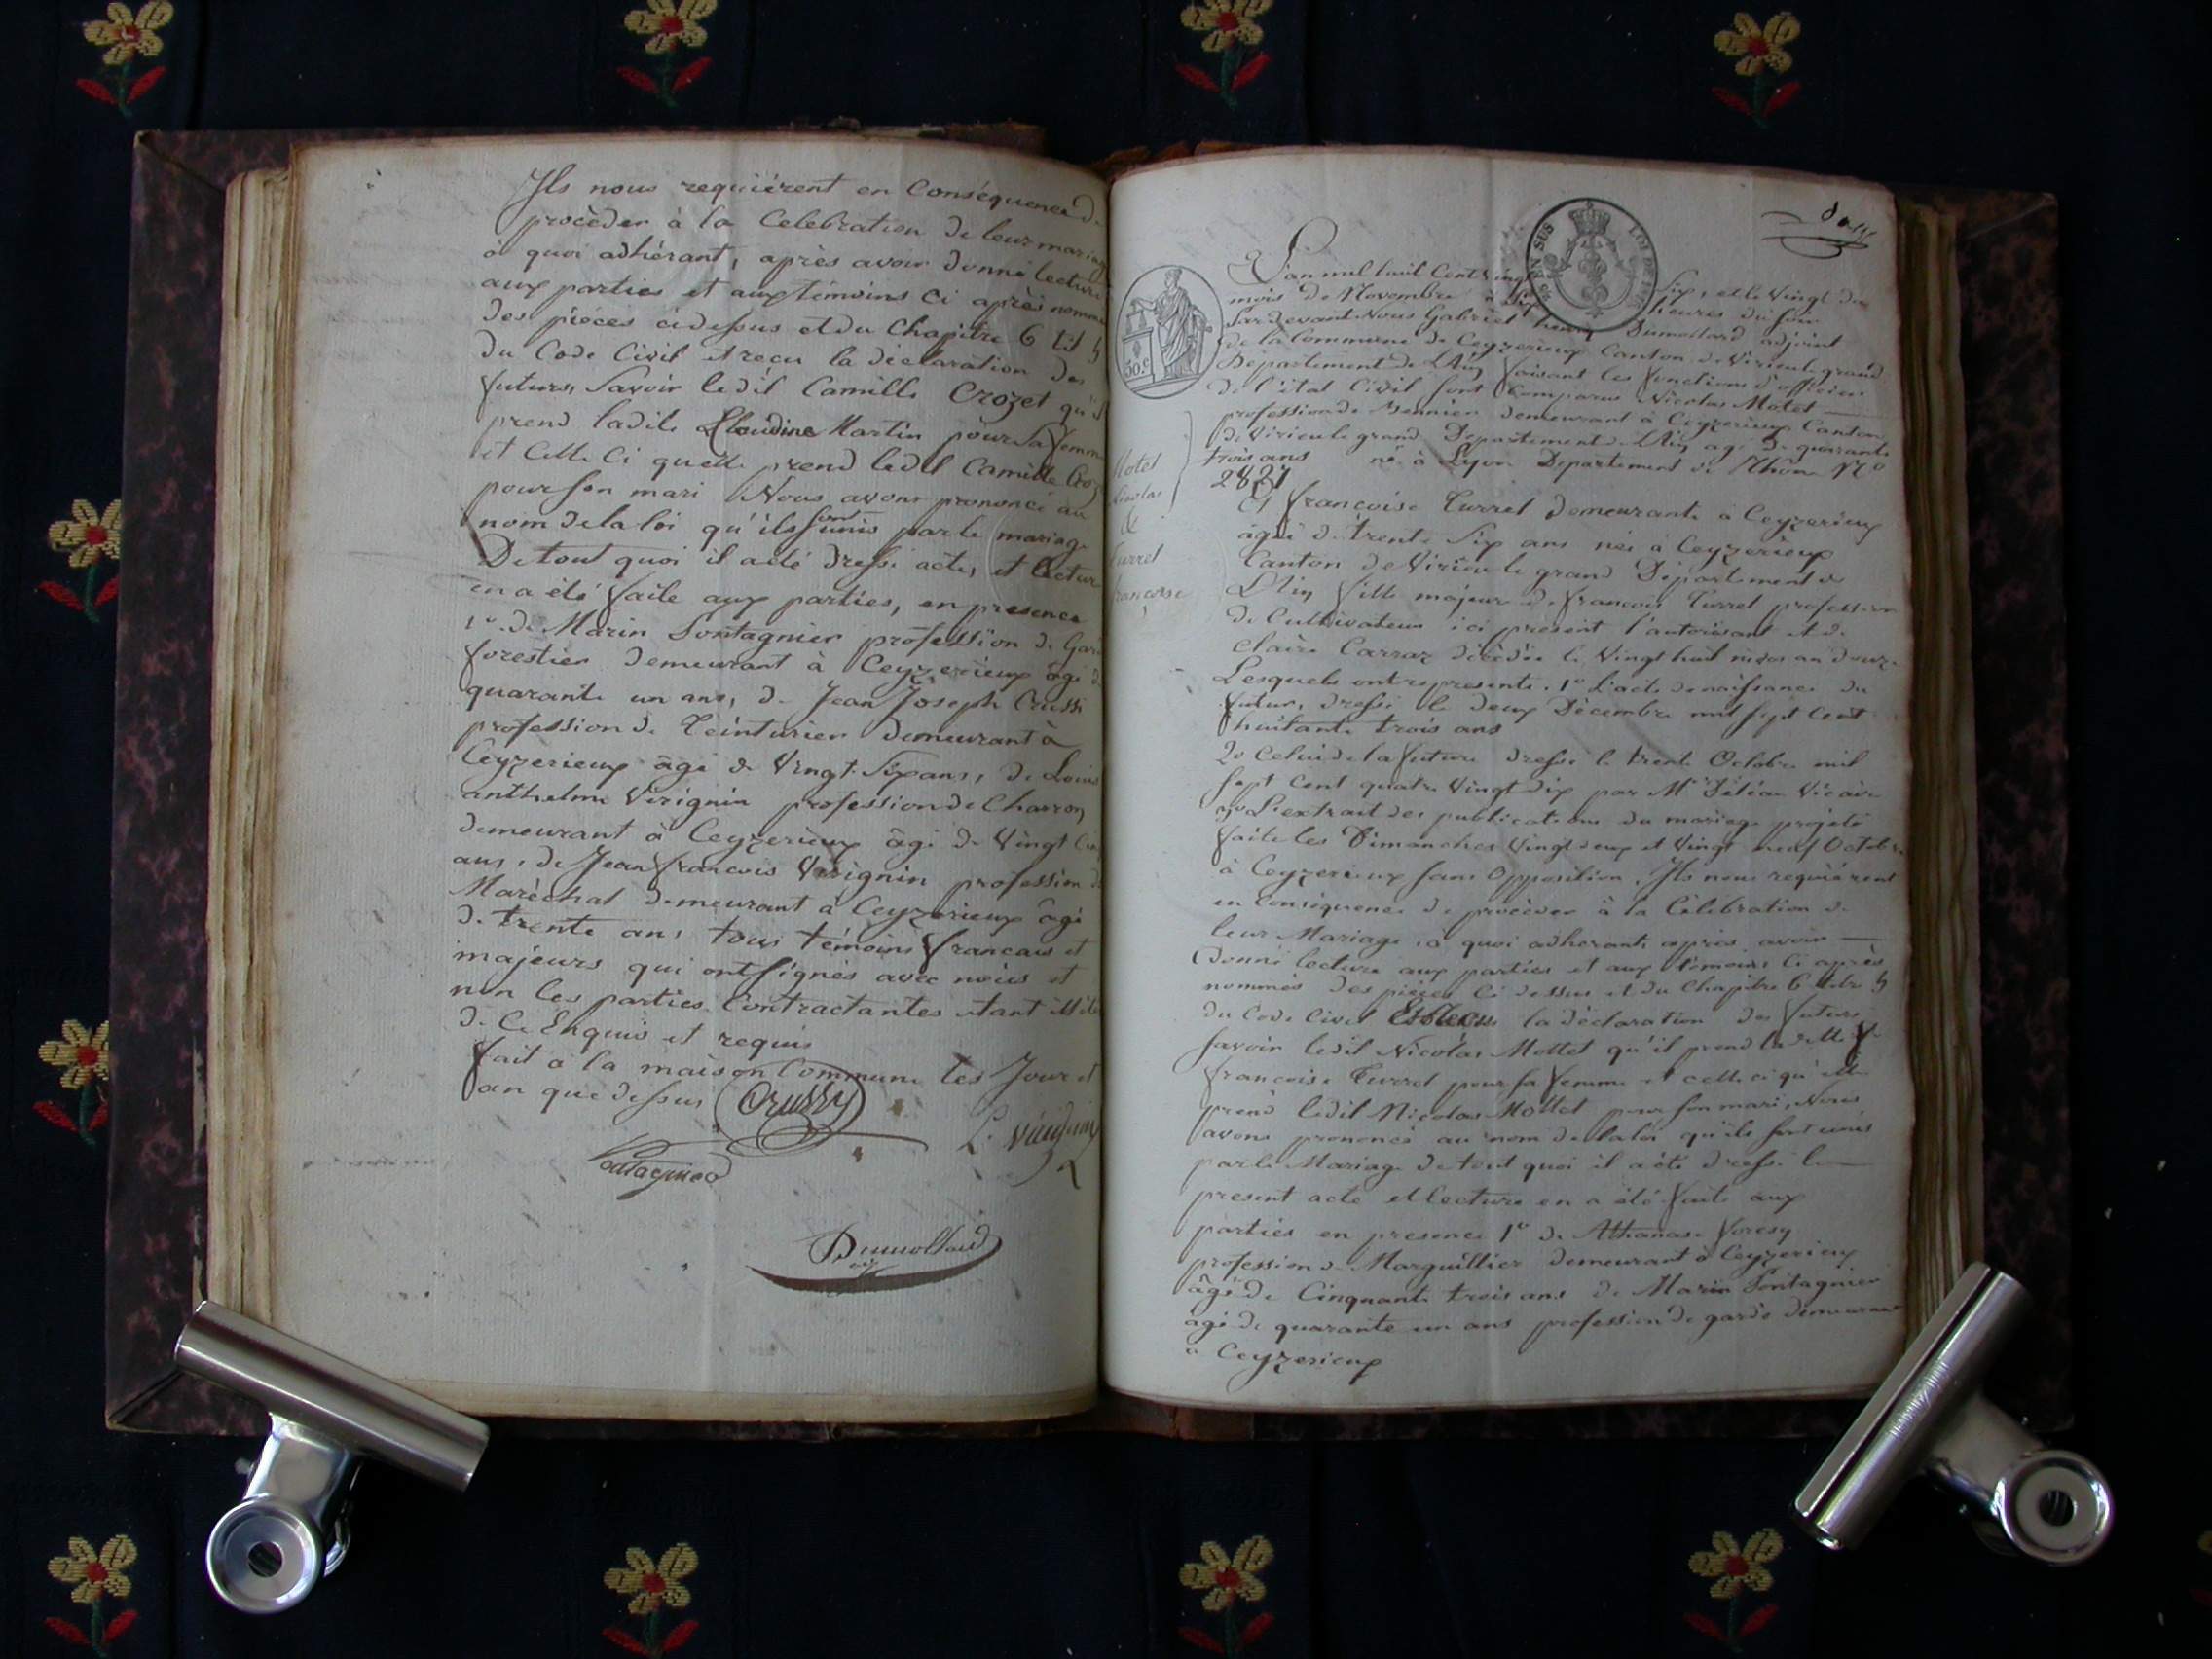 Ils nous requièrent en Conséquence de
procèder à la Celebration de leur mariage
à quoi adhérant, après avoir donné lecture
aux parties et aux témoins ci après nommés
des pièces cidessus et du Chapitre 6 tit 5
du Code Civil et reçu la déclaration des
futurs, Savoir ledit Camille Crozet qu'il
prend ladite Claudine Martin pour sa femme
et Celle Ci quelle prend ledit Camille Croz
pour son mari Nous avons prononcé au
nom de la loi qu'ils sont unis par le mariage
De tout quoi il a été dressé acte, et lecture
en a été faite aux parties, en presence
1o. de Marin Pontagnier profession de Gar
forestier demeurant à Ceyzerieux âgé de
quarante un ans, de Jean Joseph Crussi
profession de Teinturier demeurant à
Ceyzerieux âgé de Vingt Six ans, de Louis
anthelme Vérignin profession de Charron
demeurant à Ceyzerieux âgé de Vingt Cinq
ans, de Jean françois Verignin profession de
Maréchal demeurant à Ceyzerieux âgé
de trente ans tous témoins français et
majeurs qui ont signés avec nous et
non les parties Contractantes étant illité
de Ce Enquis et requis
fait à la maison Commune les Jour et
an que dessus Crussy
Pontagnier
Dumollard
30.c
EN SUS
LOI DE
L'an mil huit Cent Vingt Six, et le Vingt du
mois de Novembre à Six heures du soir
Pardevant Nous Gabriel henry Dumollard adjoint
de la Commune de Ceyzerieux Canton de Virieu le grand
Département de L'Ain faisant les fonctions d'officier
de l'état Civil sont Comparus Nicolas Motet
profession de Meunier demeurant à Ceyzerieux Canton
de Virieu le grand Département de L'Ain agé de quarante
trois ans né à Lyon Département du Rhone No
2827
Motet
Nicolas
&
Turrel
françoise
Et françoise Turrel demeurante à Ceyzerieux
âgée de trente Six ans née à Ceyzerieux
Canton de Virieu le grand Département de
L'Ain fille majeure de françois Turrel profession
de Cultivateur ici présent l'autorisant et de
Claire Carraz décédée le Vingt huit nivose an douze
Lesquels ont représenté. 1o L'acte de naissance du
futur, dressé le deux Décembre mil sept Cent
huitante trois ans
2o Celui de la future dressé le trente Octobre mil
sept cent quatre Vingt dix par Mr Vicaire
3o L'extrait des publications du mariage projeté
faite les Dimanches Vingt deux et Vingt neuf Octobre
à Ceyzerieux sans Opposition, Ils nous requièrent
en Conséquence de procèder à la Célébration de
leur Mariage, à quoi adherants après avoir
Donné lecture aux parties et aux témoins Ci après
nommés des pièces Ci dessus et du Chapitre 6 titre 5
du Code Civil Et Reçu la déclaration des futurs
savoir ledit Nicolas Mottet qu'il prend ladite
françoise Turrel pour sa femme et celle ci qu'elle
prend ledit Nicolas Mottet pour son mari, Nous
avons prononcé au nom de la loi qu'ils sont unis
par le Mariage de tout quoi il a été dressé le
present acte et lecture en a été faite aux
parties en presence 1o de Athanase Voresy
profession de Marguillier demeurant à Ceyzerieux
âgé de Cinquante trois ans de Marin Pontagnier
âgé de quarante un ans profession de garde demeurant
à Ceyzerieux